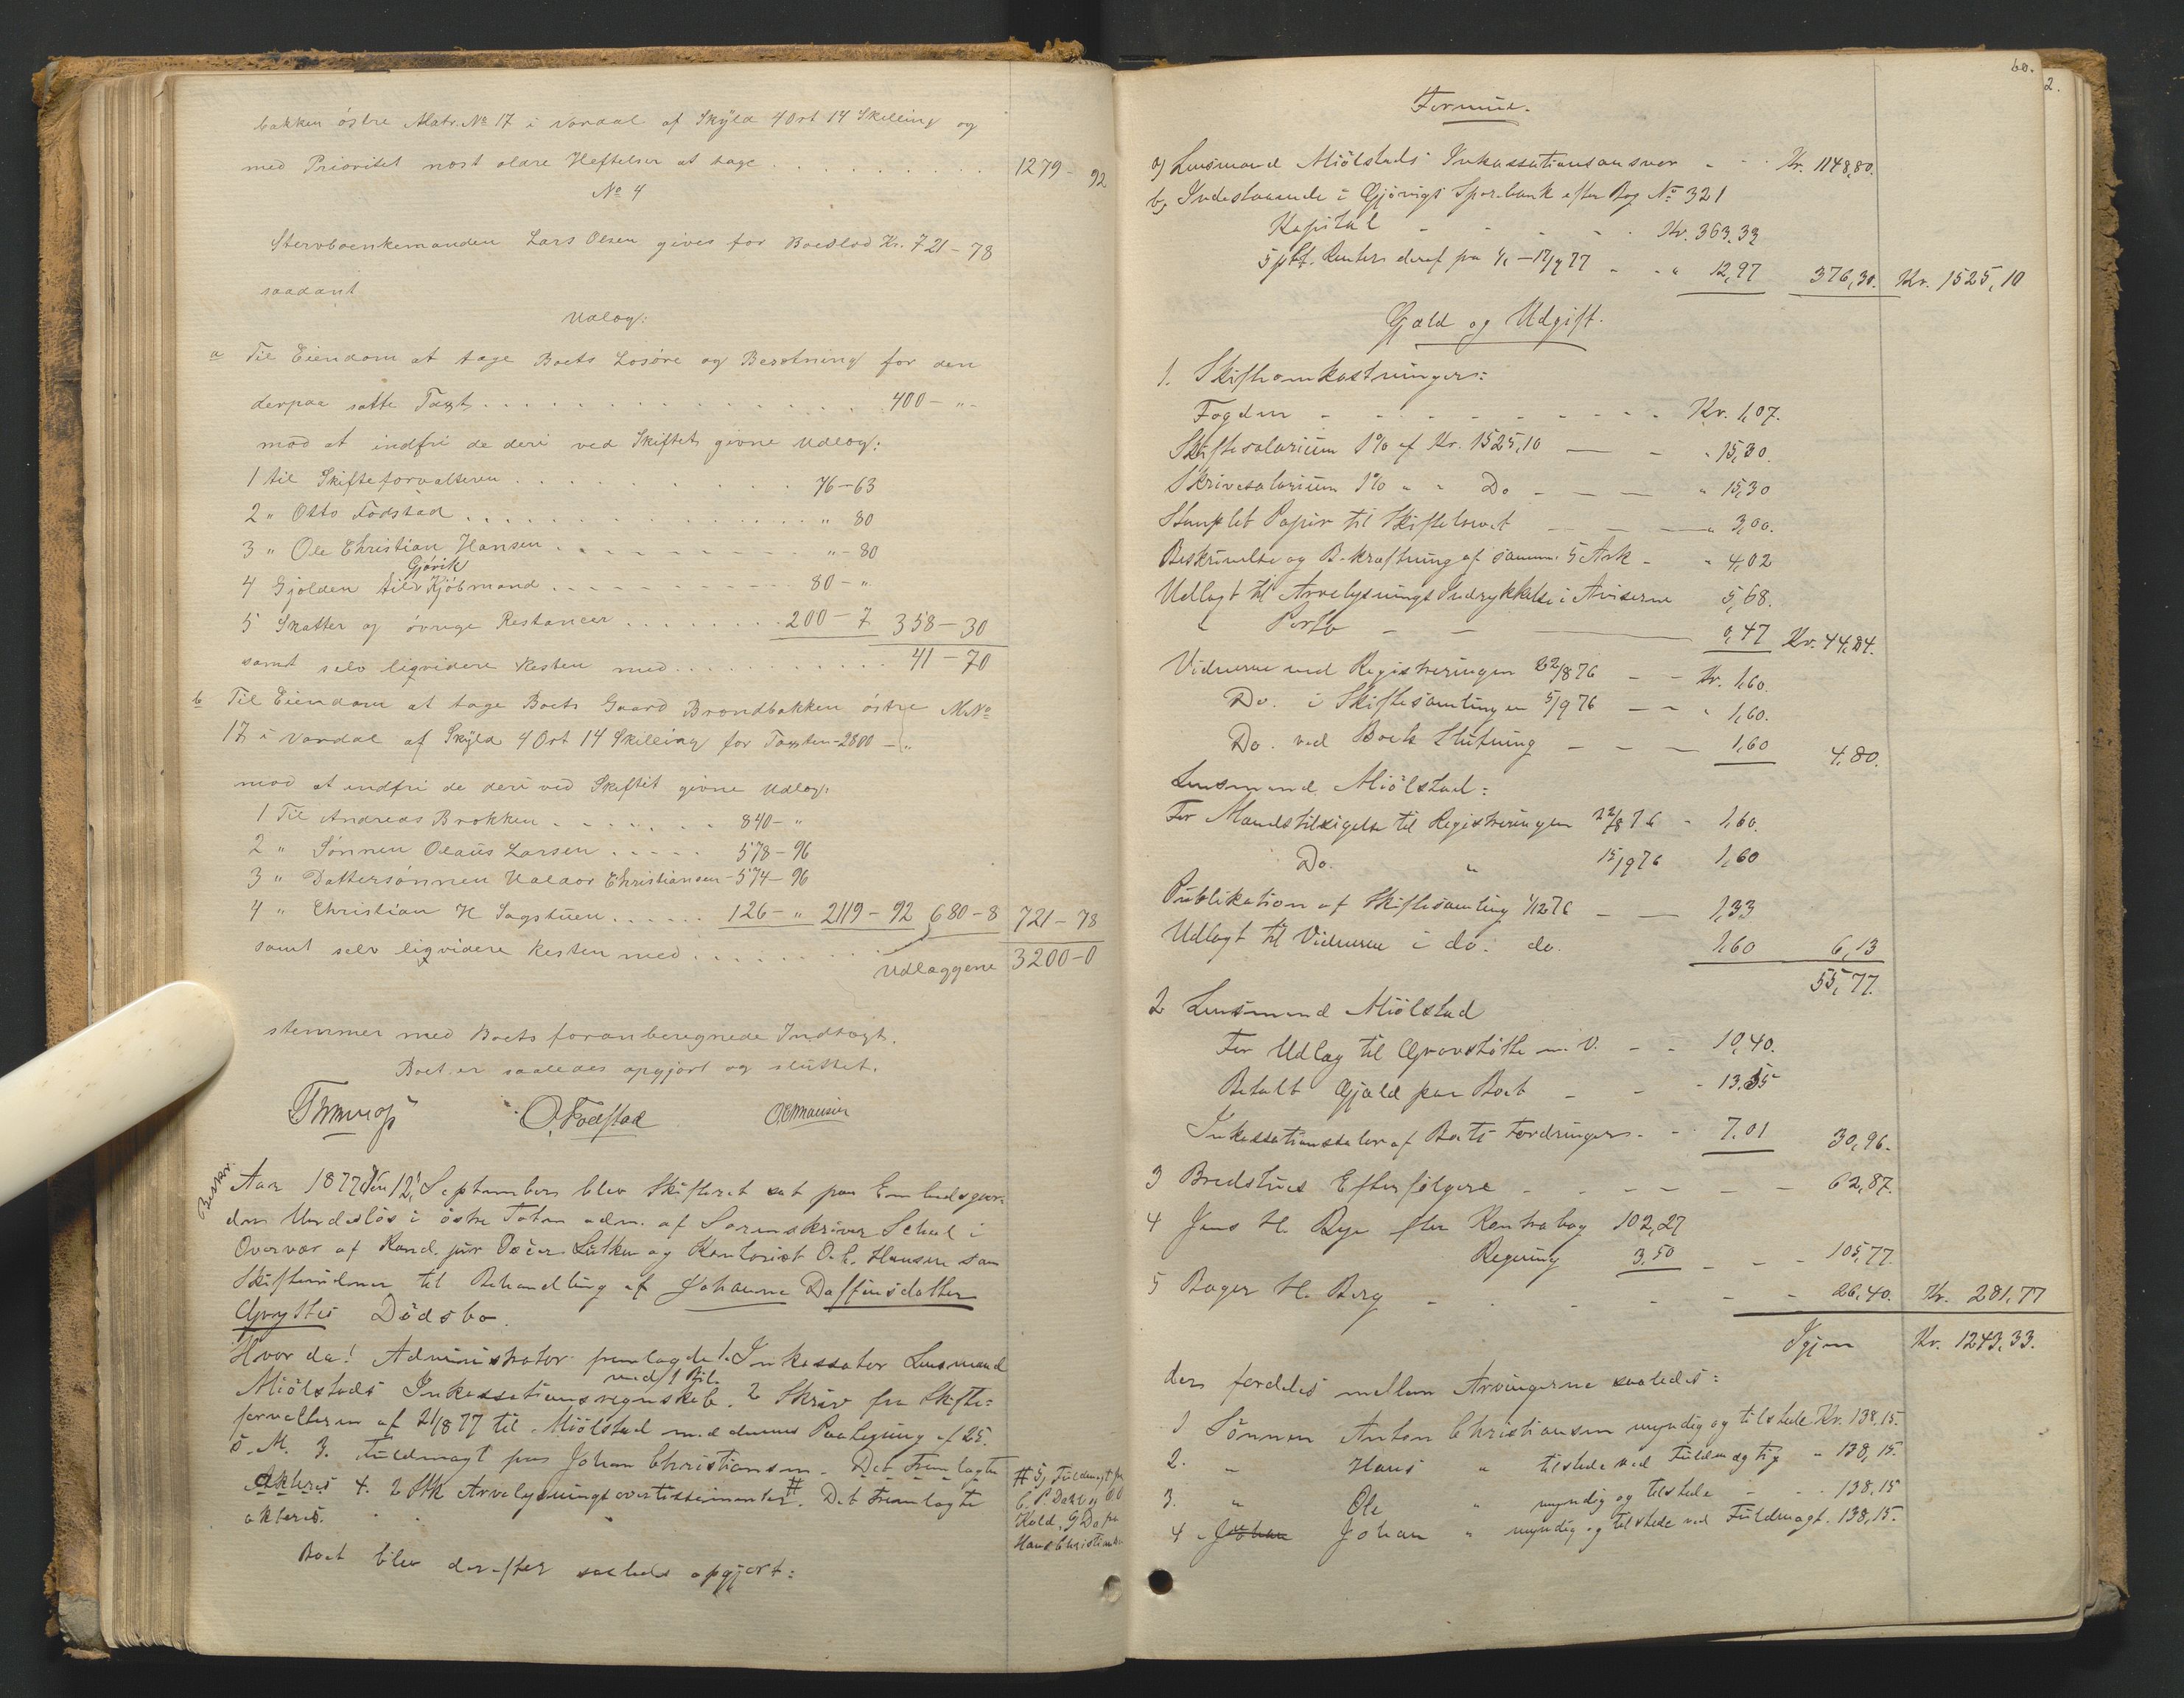 bakken östre Matr. No 17 i Vardal af Skÿld 4 Ort 14 Skilling og
med Prioritet næst ældre Heftelser at tage . . . . . . . . . 1279 - 92
No 4
Stervboenkemanden Lars Olsen gives for Boeslod Kr. 721 - 78
saadant
Udlæg:
a Til Eiendom at tage Boets Losöre og Besætning for den
derpaa satte Taxt . . . . . . . . . . . . 400 - "-
mod at indfri de deri ved Skiftet givne Udlæg:
1 til Skifteforvalteren . . . . . . . . . . . 76 - 63
2 " Otto Fodstad . . . . . . . . . . . . . . " 80
3 " Ole Christian Hansen . . . . . . . . . . " - 80
Gjövik
4 Gjælden til Kjöbmænd . . . . . . . . . . 80 - "
5 Skatter og övrige Restancer . . . . . . . . 200 - 7 358 - 30
samt selv liqvidere Resten med . . . . . . . . . . . 41 - 70
b Til Eiendom at tage Boets Gaard Brændbakken östre M. No
17 i Vardal af Skÿld 4 Ort 14 Skilling for Taxten - 2800 - "
mod at indfri de deri ved Skiftet givne Udlæg:
1 Til Andreas Brokken . . . . . . . 840 - "
2 " Sönnen Olaus Larsen . . . . . 578 - 96
3 " Dattersönnen Haldor Christiansen - 574 - 96
4 " Christian H Sagstuen . . . . . . 126 - " 2119 - 92 680 - 8 721 - 78
samt selv liqvidere Resten med . . . . . . . .
Udlæggene 3200 - 0
stemmer med Boets foranberegnede Indtægt.
Boet er saaledes opgjort og sluttet.
O. Fodstad O C Hansen
Aar 1877 den 12' September blev Skifteret sat paa Embedsgaar-
den i östre Toten adm. af Sorenskriver i
Overvær af Kand. jur og Kontorist O. C. Hansen som
Skiftevidner til Behandling af Johanne Daffinsdatter
Dödsbo.
Hvor da! Administrator fremlagde 1. Inkassator Lensmand
med 1 Bil.
Miölstads Inkassationsregnskab. 2 Skriv fra Skifte-
forvalteren af 21/8 77 til Miölstad med dennes Paategning af 25.
s. M. 3. Fuldmagt fra Johan Christiansen. Det Fremlagte
akteres 4. 2 Stk Arvelysningsavertissementer #. Det Fremlagte
akteres.
# 5, Fuldmagt fra
C. P. Dahl og
Kold, G Do fra
Hans Christiansen
Boet blev derefter saaledes opgjort:
60.
2.
Formue.
a) Lensmand Miölstads Inkassationsansvar - - Kr. 1148,80.
b) Indestaaende i Gjöviigs Sparebank efter Bog No 321
Kapital - - - - - Kr. 363,33
5 pCt. Renter deraf fra 1/1 - 17/9 77 - - " 12,97 376,30. Kr. 1525,10
Gjæld og Udgift.
1. Skifteomkostninger:
Fogden - - - - - - - - - Kr. 1,07.
Skiftesalarium 1% af Kr. 1525,10 - - " 15,30.
Skrivesalarium 1% " " Do - - - " 15,30
Stemplet Papir til Skiftebrevet - - - " 3,00.
Beskrivelse og Bekræftning af samme 5 Ark - " 4,02
Udlagt til Arvelysnings Indrykkelse i Aviserne 5,68.
" Porto - - - 0,47 Kr. 44,84.
Vidnerne ved Registreringen 22/8 76 - - Kr. 1,60.
Do. i Skiftesamlingen 5/9 76 - - " 1,60.
Do. ved Boets Slutning - - - 1,60 4,80.
Lensmand Miölstad:
For Mandstilsigelse til Registreringen 22/8 76 - 1,60.
Do. " 15/9 76 1,60
Publikation af Skiftesamling 1/12 76 - - 1,33
Udlagt til Vidnerne i do. do. 1,60 6,13
55,77.
2 Lensmand Miölstad
For Udlæg til Gravstötte m. V. - - 10,40.
Betalt Gjæld paa Boet - - - 13.55
Inkassationssalær af Boets Fordringer - - 7.01 30,96.
3 Bredstues Efterfölgere - - - - - - 62,87.
4 Jens H. Bye efter Kontrabog 102,27
Regning 3,50 - - - 105,77.
5 Bager H. Berg - - - - - - 26,40. Kr. 281,77
Igjen Kr. 1243,33.
der fordeles mellem Arvingerne saaledes:
1 Sönnen Anton Christiansen myndig og tilstede Kr. 138,15.
2. " Hans " tilstede ved Fuldmægtig " 138,15.
3. " Ole " myndig og tilstede - - 138,15
4 " Johan Johan " myndig og tilstede ved Fuldmagt. 138,15.